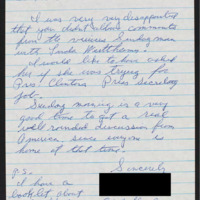 I was very very disappointed
that you didn't allow comments
from the viewers Sunday morn
with Linda
I would like to have asked
her if she was trying for
Pres. Clintons Press Secretary
job.
Sunday morning is a very
good time to get a real
well rounded discussion from
America since everyone is
home at that time.
Sincerely
P.S.
I have a
booklet about